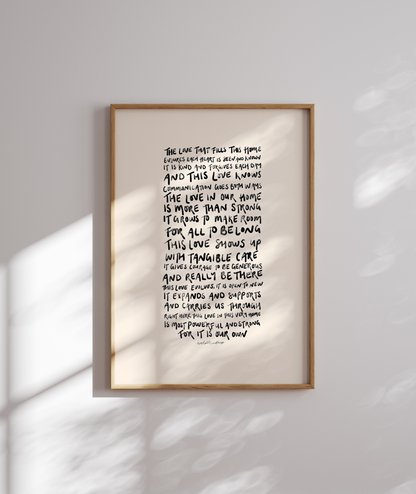 THE LOVE THAT FILLS THIS HOME
ENSURES EACH HEART IS SEEN AND KNOWN
IT IS KIND AND FORGIVES EACH DAY
AND THIS LOVE KNOWS
COMMUNICATION GOES BOTH WAYS
THE LOVE IN OUR HOME
IS MORE THAN STRONG
IT GROWS TO MAKE ROOM
FOR ALL TO BELONG
THIS LOVE SHOWS UP
WITH TANGIBLE CARE
IT GIVES COURAGE TO BE GENEROUS
AND REALLY BE THERE
THIS LOVE EVOLVES, IT IS OPEN TO NEW
IT EXPANDS AND SUPPORTS
AND CARRIES US THROUGH
RIGHT HERE THIS LOVE IN THIS VERY HOME
IS MOST POWERFUL AND STRONG
FOR IT IS OUR OWN